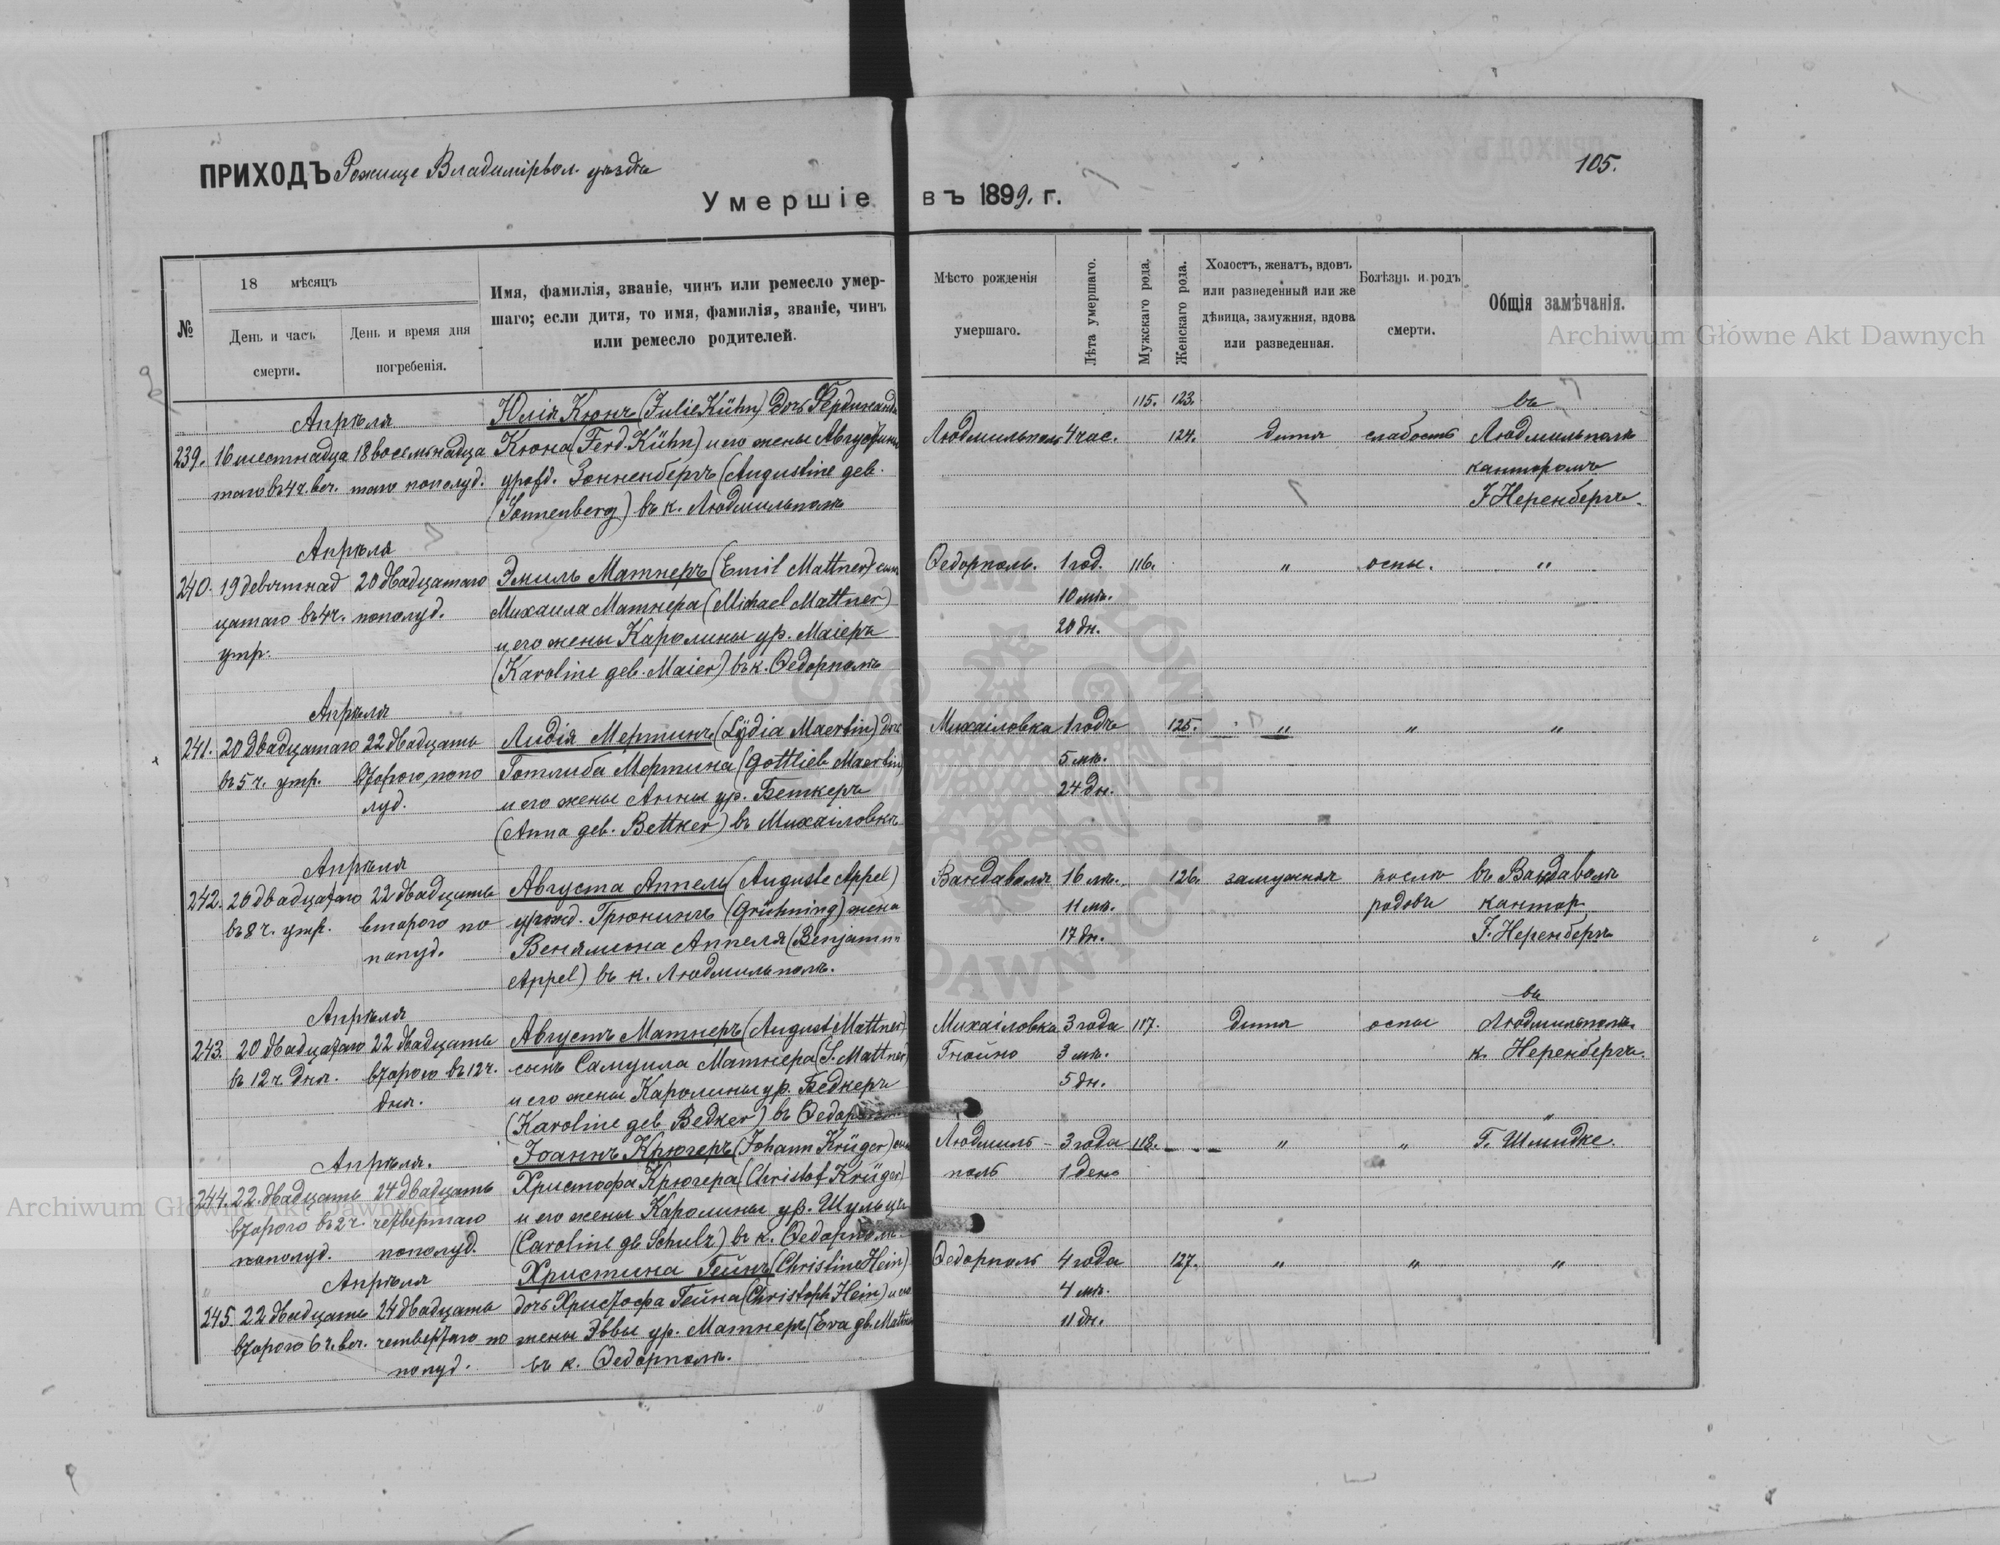 ПРИХОДЪ Рожище Владимірвол. уѣзда
105.
Умершіе въ 1899. г.
№
18 мѣсяцъ
День и часъ смерти.
День и время дня погребенія.
Имя, фамилія, званіе, чинъ или ремесло умер-
шаго; если дитя, то имя, фамилія, званіе, чинъ
или ремесло родителей.
Мѣсто рожденія
умершаго.
Лѣта умершаго.
Мужскаго рода.
Женскаго рода.
Холостъ, женатъ, вдовъ
или разведенный или же
дѣвица, замужняя, вдова
или разведенная.
Болѣзнь и родъ
смерти.
Общія замѣчанія.
Archiwum Główne Akt Dawnych
115. 123.
Апрѣля Юлія Кюнъ (Julie Kühn) дочь Фердинанда въ
239. 16 шестнадца 18 восемьнадца Кюна (Ferd. Kühn) и его жены Августины Людмильполь 4 час. 124. дитя слабость Людмильполѣ
таго въ 4 ч. веч. таго пополуд. урожд. Зонненбергъ (Augustine geb. канторомъ
Sonnenberg) въ к. Людмильполѣ Неренбергъ.
Апрѣля
240. 19 девятнад 20 двадцатаго Эмиль Матнеръ (Emil Mattner) сынъ Ѳедорполь. 1 год. 116. " оспы. "
цатаго въ 4 ч. пополуд. Михаила Матнера (Michael Mattner) 10 мѣ.
утр. и его жены Каролины ур. Маіеръ 20 дн.
(Karoline geb. Maier) въ к. Ѳедорполѣ
Апрѣля
241. 20 двадцатаго 22 двадцать Лидія Мертинъ (Lydia Maertin) дочь Михаіловка 1 годъ 125. " " "
въ 5 ч. утр. второго, попо Готлиба Мертина (Gottlieb Maertin) 5 мѣ.
луд. и его жены Анны ур. Беткеръ 24 дн.
(Anna geb. Bettker) въ Михаіловкѣ
Апрѣля
242. 20 двадцатаго 22 двадцать Августа Аппель (Auguste Appel) Вандаволя 16 лѣ. 126. замужняя послѣ въ Вандаволѣ
въ 8 ч. утр. второго по урожд. Грюнингъ (Grühning) жена 11 мѣ. родовъ кантор
полуд. Веніямина Аппеля (Benjamin 17 дн. Неренбергъ
Appel) въ к. Людмильполь.
Апрѣля въ
243. 20 двадцатаго 22 двадцать Августъ Матнеръ (August Mattner) Михаіловка 3 года 117. дитя оспы Людмильполѣ.
въ 12 ч. дня. второго въ 12 ч. сынъ Самуила Матнера (S. Mattner) Гнойно 3 мѣ. к. Неренбергъ.
дня. и его жены Каролины ур. Бедкеръ 5 дн.
(Karoline geb. Bedker) въ "
Апрѣля. Іоаннъ Крюгеръ (Johann Krüger) Людмиль- 3 года 118. " " Г. Шмидке.
244. 22 двадцать 24 двадцать Христофа Крюгера (Christof Krüger) поль 1 день
второго въ 2 ч. четвертаго и его жены Каролины ур. Шульцъ
пополуд. пополуд. (Caroline gb Schulz) въ к. Ѳедорполѣ
Апрѣля Христина Гейнъ (Christine Hein) Ѳедорполь 4 года 127. " " "
245. 22 двадцать 24 двадцать дочь Христофа Гейна (Christoph Hein) и его 4 мѣ.
второго 6 ч. веч. четвертаго по жены Эввы ур. Матнеръ (Eva gb. Mattner 11 дн.
полуд. въ к. Ѳедорполѣ.
Archiwum Główne Akt Dawnych